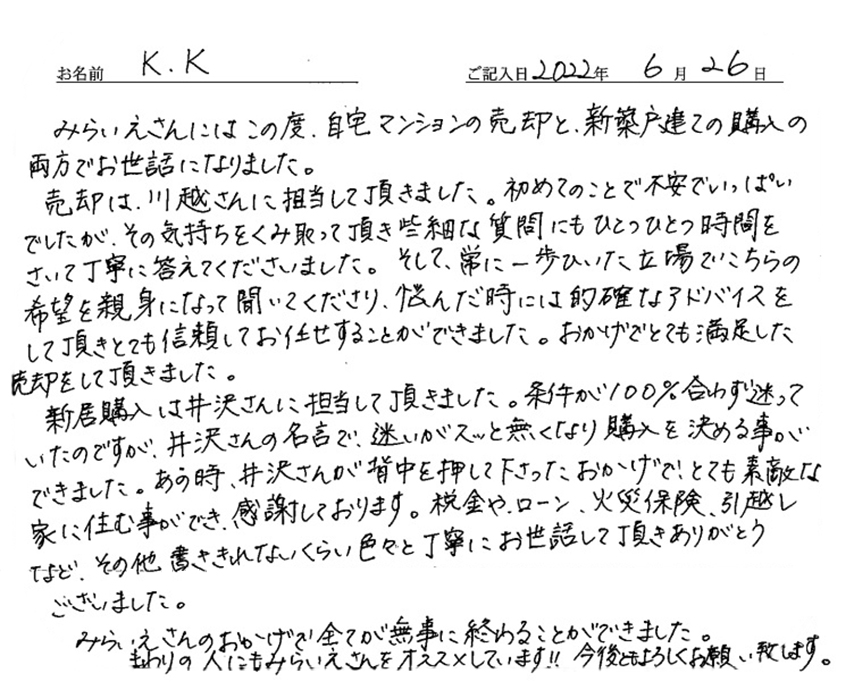 お名前 K.K ご記入日 2022年 6月 26日
みらいえさんにはこの度、自宅マンションの売却と、新築戸建ての購入の
両方でお世話になりました。
売却は、川越さんに担当して頂きました。初めてのことで不安でいっぱい
でしたが、その気持ちをくみ取って頂き些細な質問にもひとつひとつ時間を
さいて丁寧に答えてくださいました。そして、常に一歩ひいた立場でこちらの
希望を親身になって聞いてくださり、悩んだ時には的確なアドバイスを
して頂きとても信頼してお任せすることができました。おかげでとても満足した
売却をして頂きました。
新居購入は井沢さんに担当して頂きました。条件が100%合わず迷って
いたのですが、井沢さんの名言で、迷いがスッと無くなり購入を決める事が
できました。あの時、井沢さんが背中を押して下さったおかげで、とても素敵な
家に住む事ができ、感謝しております。税金や、ローン、火災保険、引越し
など、その他書ききれないくらい色々と丁寧にお世話して頂きありがとう
ございました。
みらいえさんのおかげで全てが無事に終わることができました。
まわりの人にもみらいえさんをオススメしています!! 今後ともよろしくお願い致します。